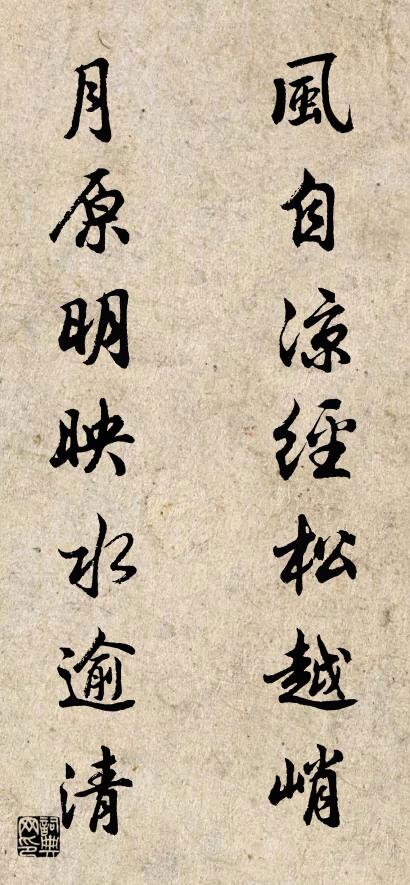 風自凉經松越峭
月原明映水逾清
詞典网印